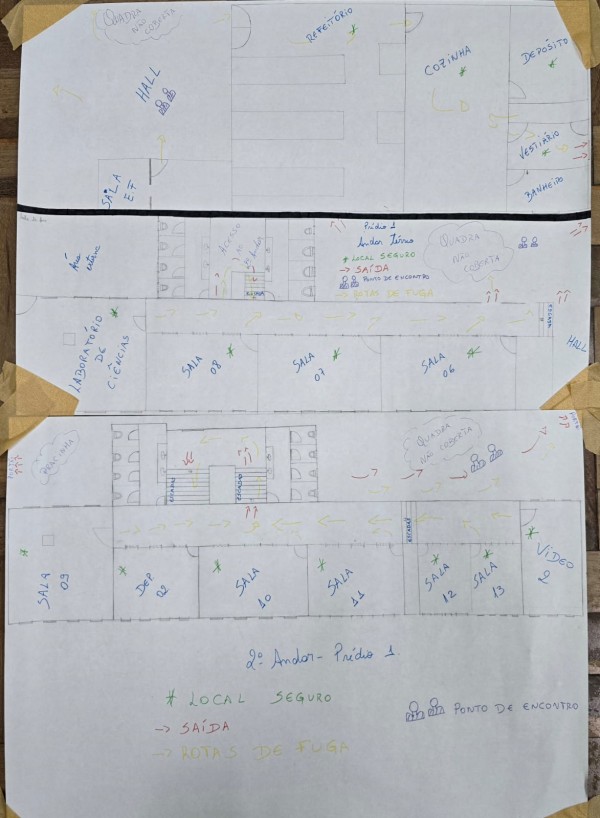 QUADRA
NÃO COBERTA
REFEITÓRIO
COZINHA
DEPÓSITO
HALL
VESTIÁRIO
BANHEIRO
SALA
EF
Prédio 1
Andar Térreo
* LOCAL SEGURO
→ SAÍDA
PONTO DE ENCONTRO
→ ROTAS DE FUGA
QUADRA
NÃO
COBERTA
Área
externa
ACESSO
2º Andar
ESCADA
ESCADA
HALL
LABORATÓRIO
DE
CIÊNCIAS
SALA
08
SALA
07
SALA
06
QUADRA
NÃO COBERTA
ESCADAS
ESCADAS
ESCADAS
SALA
09
DEP
02
SALA
10
SALA
11
SALA
12
SALA
13
VÍDEO
2
2º Andar - Prédio 1.
* LOCAL SEGURO
PONTO DE ENCONTRO
→ SAÍDA
→ ROTAS DE FUGA